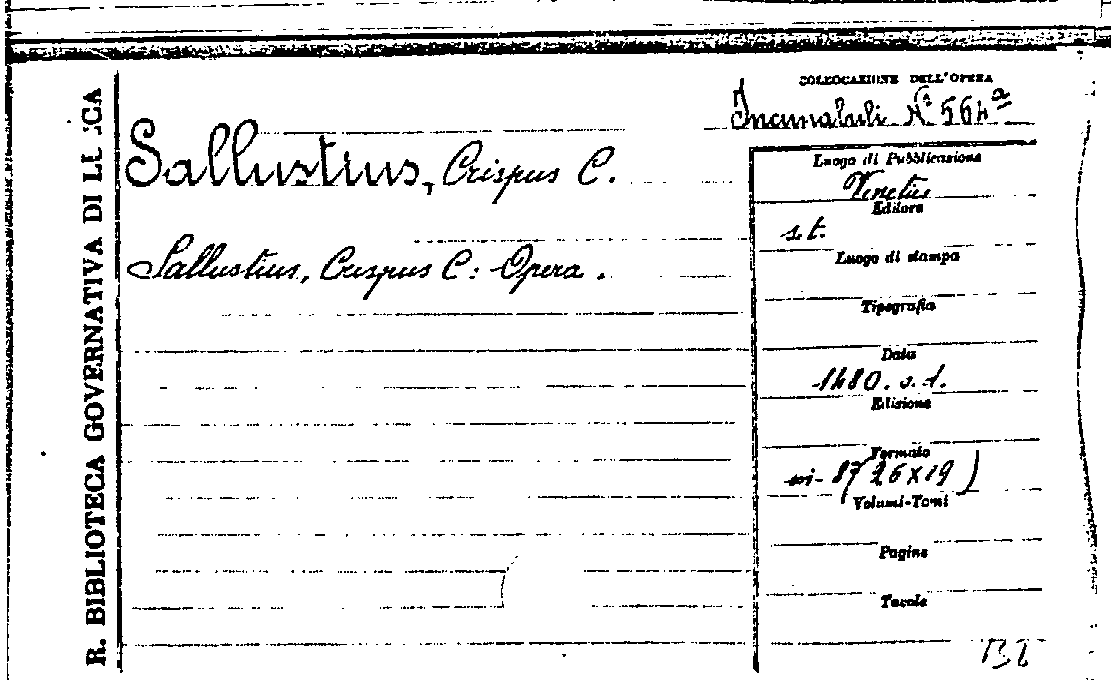 R. BIBLIOTECA GOVERNATIVA DI LUCCA
COLLOCAZIONE DELL'OPERA
Incunabuli N° 564ª
Sallustius, Crispus C.
Sallustius, Crispus C: Opera.
Luogo di Pubblicazione
Venetiis
Editore
s. t.
Luogo di stampa
Tipografia
Data
1480. s. d.
Edizione
Formato
in-8° (26 X 19)
Volumi-Tomi
Pagine
Tavole